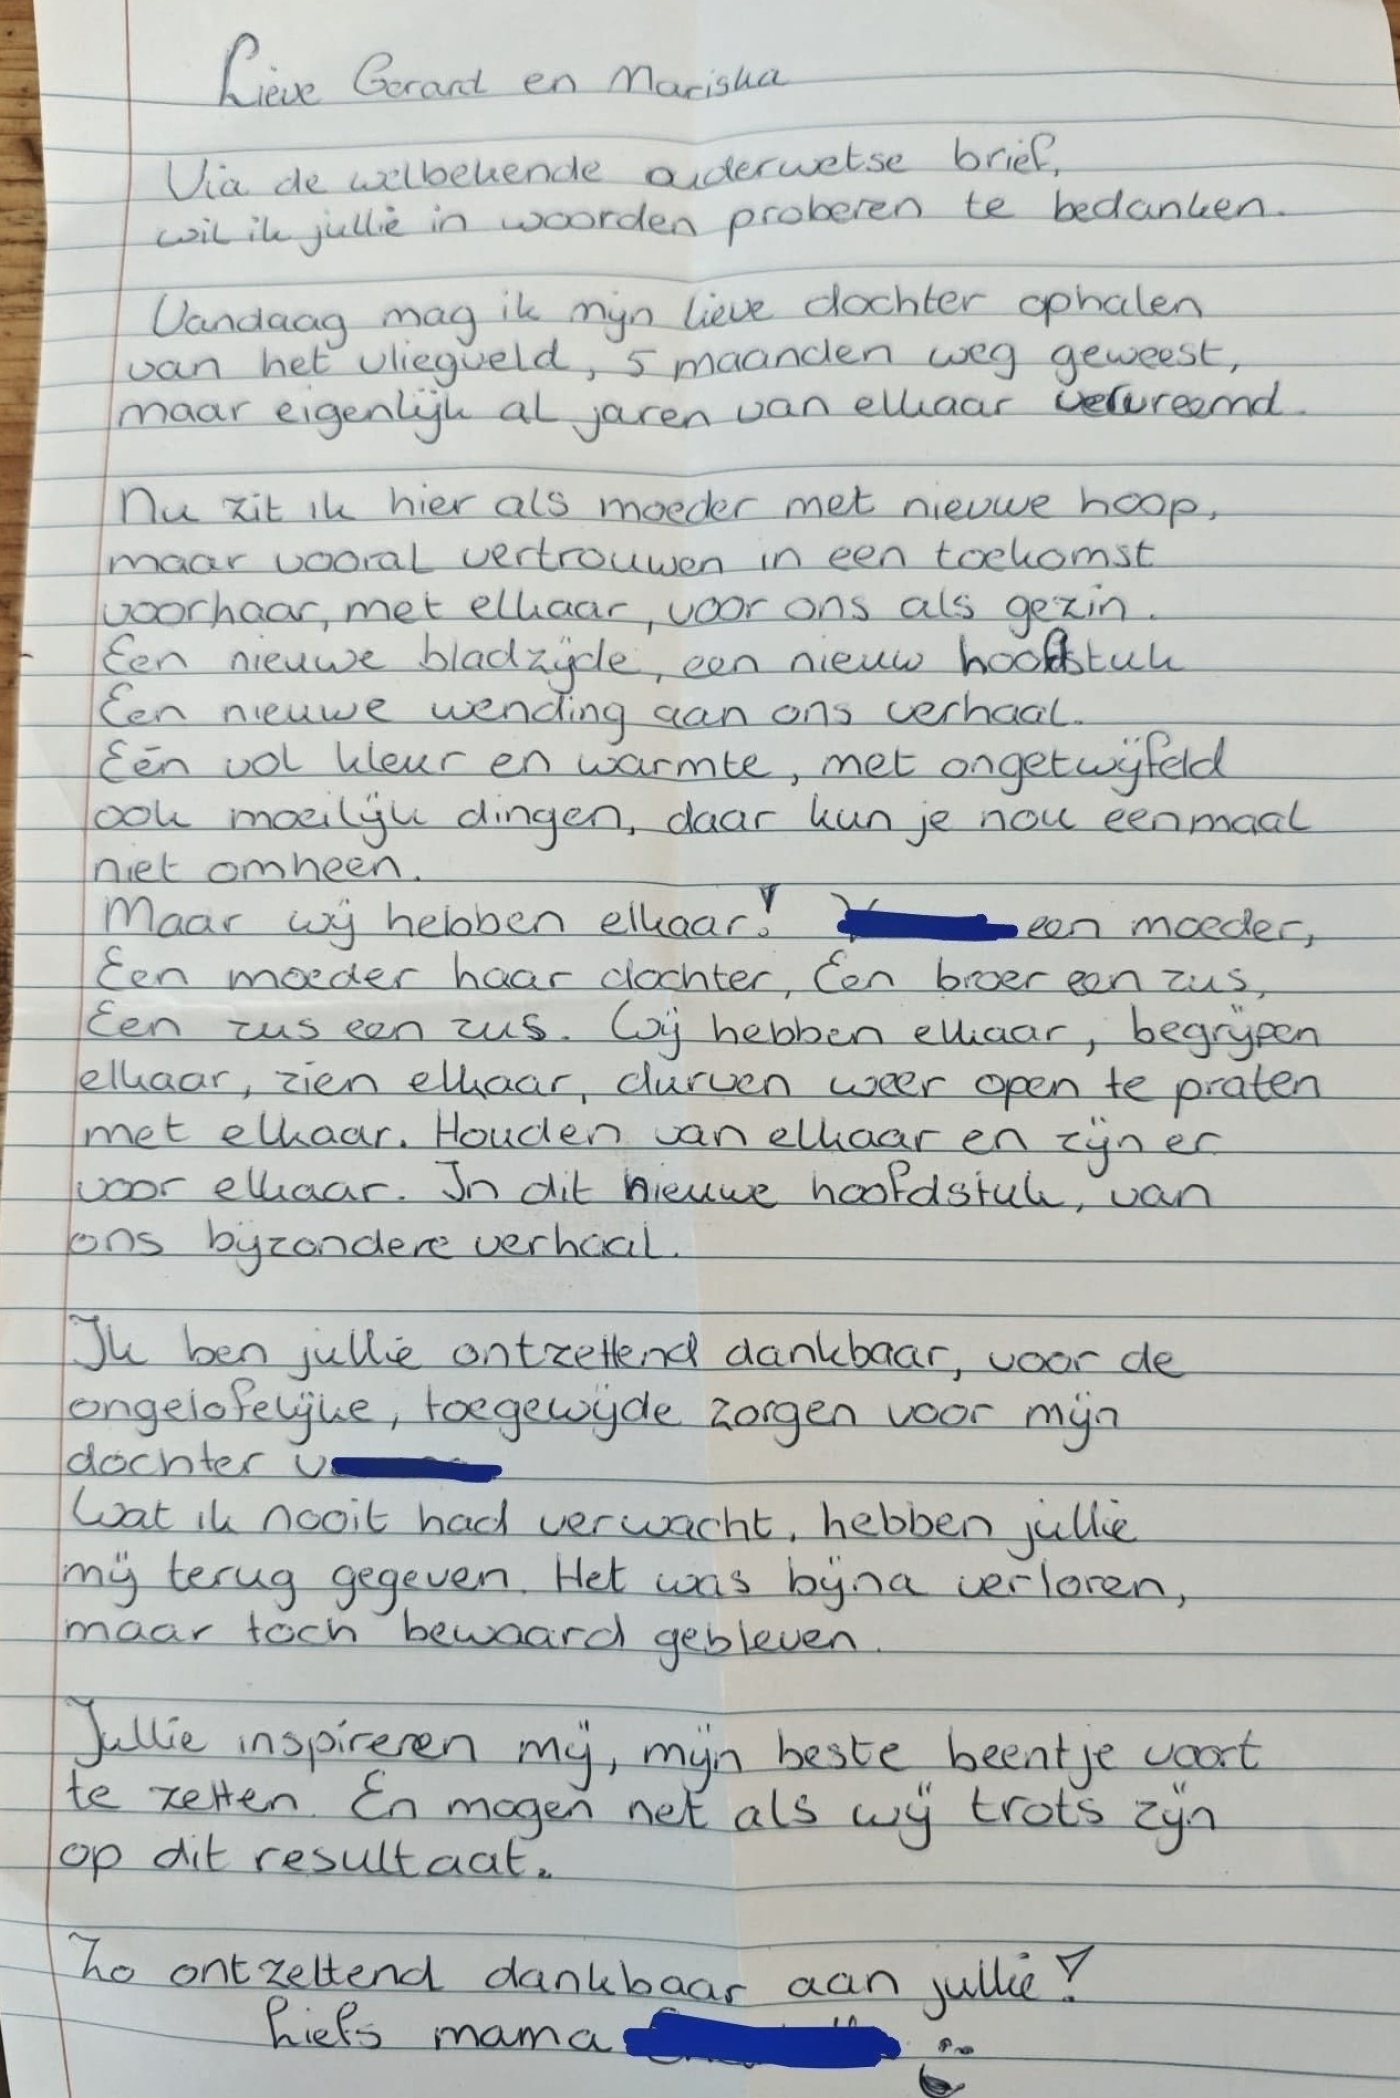 Lieve Gerard en Mariska
Via de welbekende ouderwetse brief,
wil ik jullie in woorden proberen te bedanken.
Vandaag mag ik mijn lieve dochter ophalen
van het vliegveld, 5 maanden weg geweest,
maar eigenlijk al jaren van elkaar vervreemd.
Nu zit ik hier als moeder met nieuwe hoop,
maar vooral vertrouwen in een toekomst
voor haar, met elkaar, voor ons als gezin.
Een nieuwe bladzijde, een nieuw hoofdstuk
Een nieuwe wending aan ons verhaal.
Eén vol kleur en warmte, met ongetwijfeld
ook moeilijk dingen, daar kun je nou eenmaal
niet omheen.
Maar wij hebben elkaar! een moeder,
Een moeder haar dochter, Een broer een zus,
Een zus een zus. Wij hebben elkaar, begrijpen
elkaar, zien elkaar, durven weer open te praten
met elkaar. Houden van elkaar en zijn er
voor elkaar. In dit nieuwe hoofdstuk, van
ons bijzondere verhaal.
Ik ben jullie ontzettend dankbaar, voor de
ongelofelijke, toegewijde zorgen voor mijn
dochter
Wat ik nooit had verwacht, hebben jullie
mij terug gegeven. Het was bijna verloren,
maar toch bewaard gebleven.
Jullie inspireren mij, mijn beste beentje voort
te zetten. En mogen net als wij trots zijn
op dit resultaat.
Zo ontzettend dankbaar aan jullie!
Liefs mama